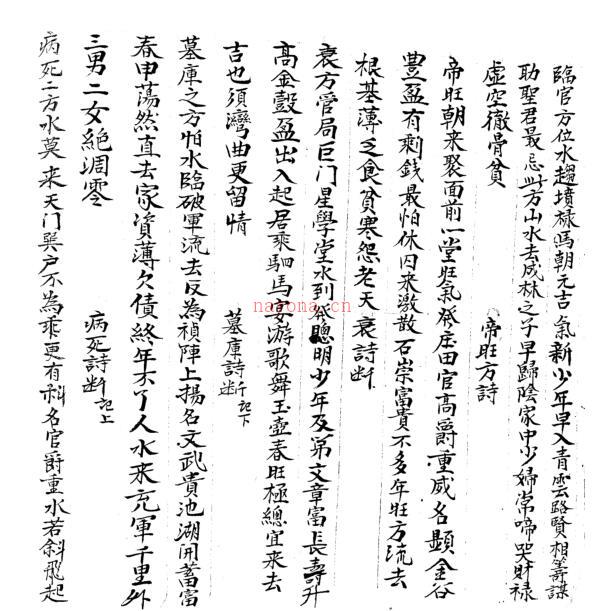 臨官方位水趨墳祿馬朝元吉氣新少年早入青雲路賢相籌謀
助聖君最忌此方山水去成林之子早歸陰家中少婦常啼哭財祿
虛空徹骨貧 帝旺方詩
帝旺朝来聚面前一堂旺氣發庄田官高爵重威名顯金谷
豐盈有剩錢最怕休囚来激散石崇富貴不多年旺方流去
根基薄乏食貧寒怨老天衰詩断
衰方管局巨门星學堂水到發聰明少年及第文章富長壽升
高金穀盈出入起居乘駟馬宴游歌舞玉壺春旺極總宜来去
吉也須灣曲更留情 墓庫詩断記下
墓庫之方怕水臨破軍流去反為禎陣上揚名文武貴池湖開蓄富
春申蕩然直去家資薄欠債終年不了人水来充軍千里外
三男二女絕凋零 病死詩断記上
病死二方水莫来天门巽户不為乖更有科名官爵重水若斜飛起
nayona.cn